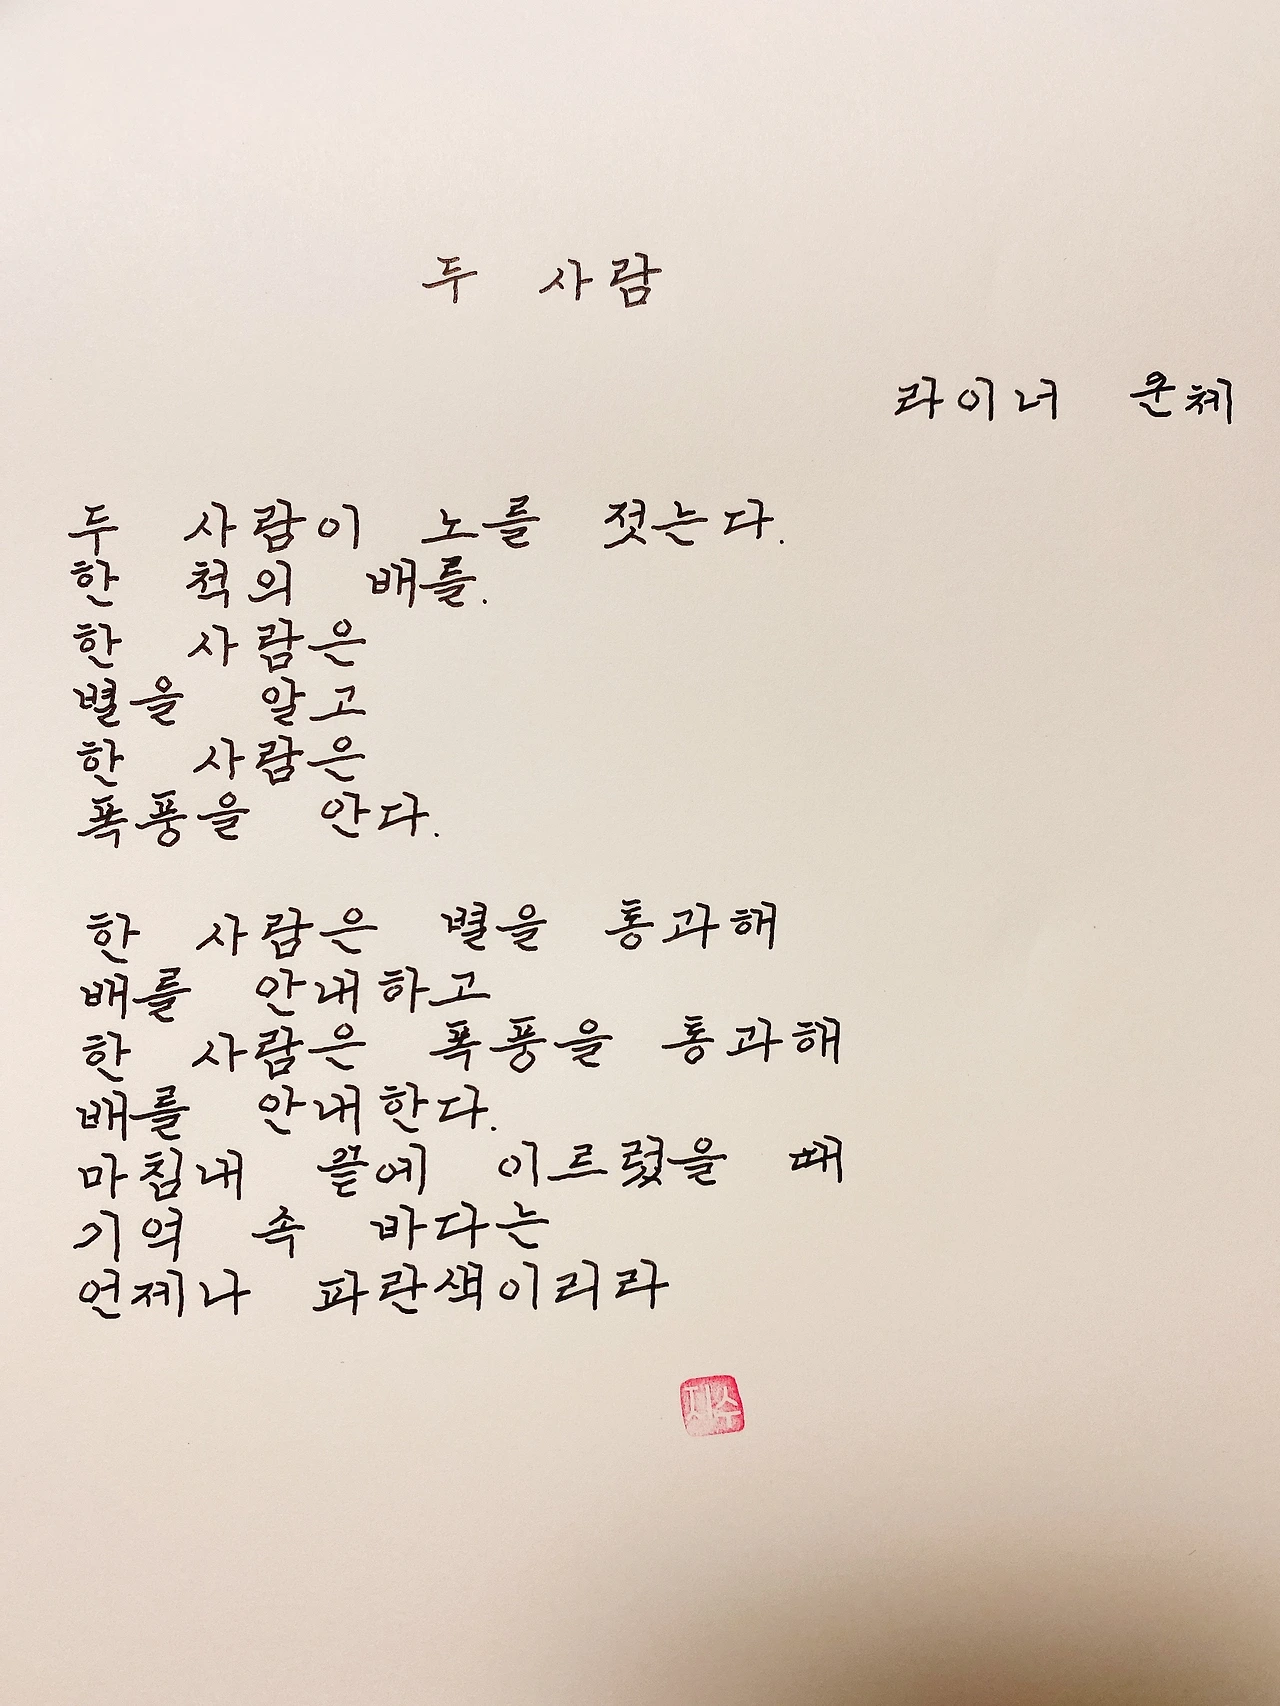 두 사람
라이너 운체
두 사람이 노를 젓는다.
한 척의 배를.
한 사람은
별을 알고
한 사람은
폭풍을 안다.
한 사람은 별을 통과해
배를 안내하고
한 사람은 폭풍을 통과해
배를 안내한다.
마침내 끝에 이르렀을 때
기억 속 바다는
언제나 파란색이리라